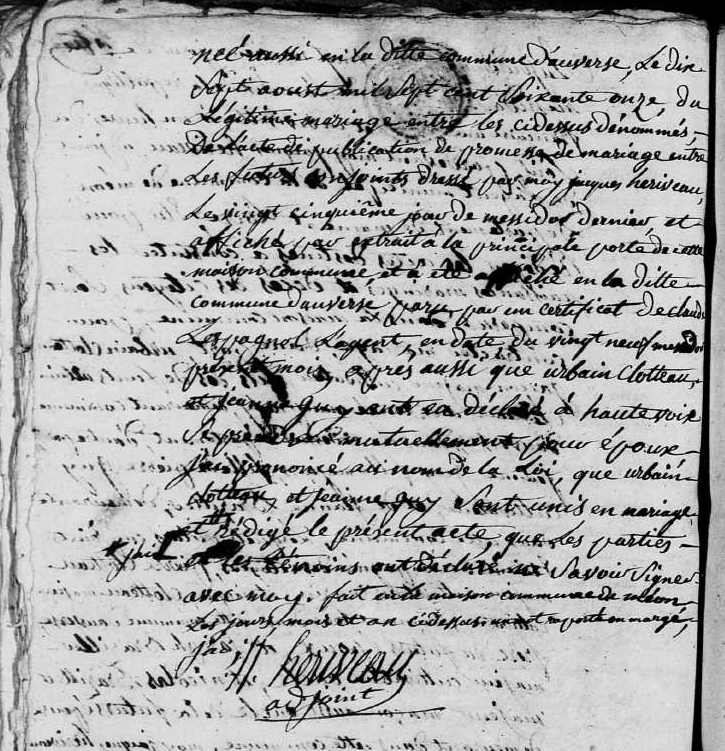 neé aussi en la ditte commune d'auverse, Le dix
Sept aoust mil Sept cent Soixante onze, du
Légitime mariage entre les cidessus dénommés,
De l'acte de publication de promesse de mariage entre
Les futurs conjoints dressé par moy jacques heriveau,
Le vingt cinquiême jour de messidor dernier, et
affiché par extrait à la principale porte de cette
maison commune et a été affiché en la ditte
commune d'auverse par un certificat de claude
Lespagnol Lagent, en date du vingt neuf messidor
présent mois, apres aussi que urbain Clotteau,
et jeanne guy ont eu déclaré à haute voix
Se prendre mutuellement pour époux
J'ai prononcé au nom de la Loi, que urbain
clotteau, et jeanne guy Sont unis en mariage
et rédigé le présent acte, que Les parties
et les témoins ont déclaré ne Savoir Signer
avec moy. fait en la maison commune de méon
Les jours, mois et an cidessus. un mot raporté en marge,
j'ai, //. heriveau
adjoint
* j'ai